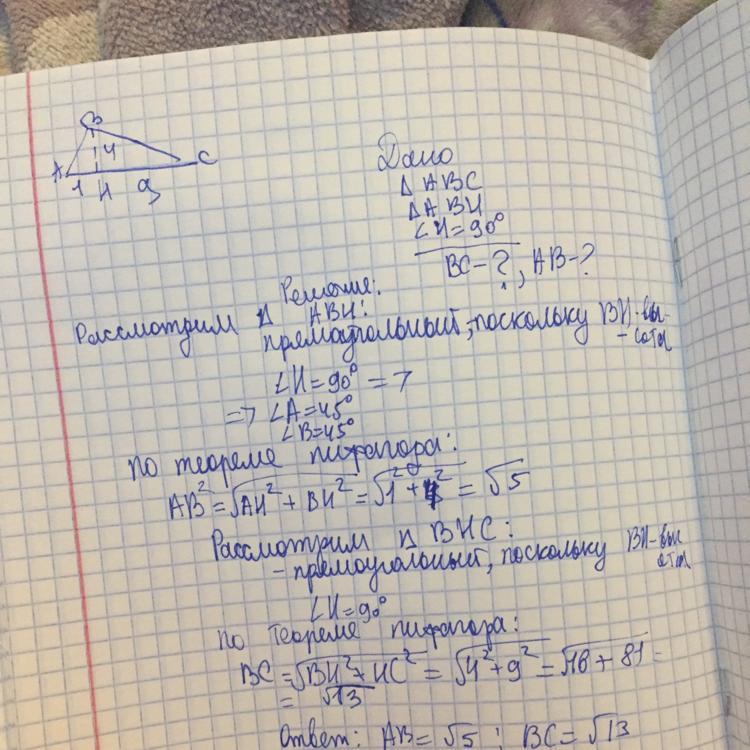 B
4
A
C
1
H
9
Дано
Δ ABC
Δ ABH
∠H=90°
BC-?, AB-?
Решение:
Рассмотрим Δ ABH:
прямоугольный, поскольку BH-вы-
-сота
∠H=90° =>
=> ∠A=45°
∠B=45°
по теореме пифагора:
AB²=√AH²+BH²=√1²+4²=√5
Рассмотрим Δ BHC:
-прямоугольный, поскольку BH-вы
сота
∠H=90°
по теореме пифагора:
BC=√BH²+HC²=√4²+9²=√16+81=
=√13
Ответ: AB=√5; BC=√13